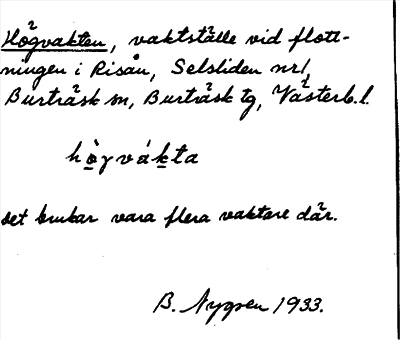 Högvakten, vaktställe vid flott-
ningen i Risån, Selsliden nr 1,
Burträsk sn, Burträsk tg, Västerb. l.
hò̤γvák̲ta
det brukar vara flera vaktare där.
B. Nygren 1933.